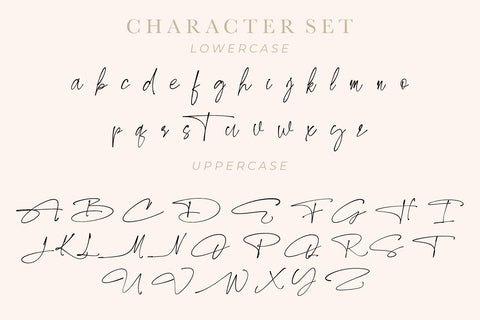 CHARACTER SET
LOWERCASE
a b c d e f g h i j k l m n o
p q r s t u v w x y z
UPPERCASE
A B C D E F G H I
J K L M N O P Q R S T
U V W X Y Z